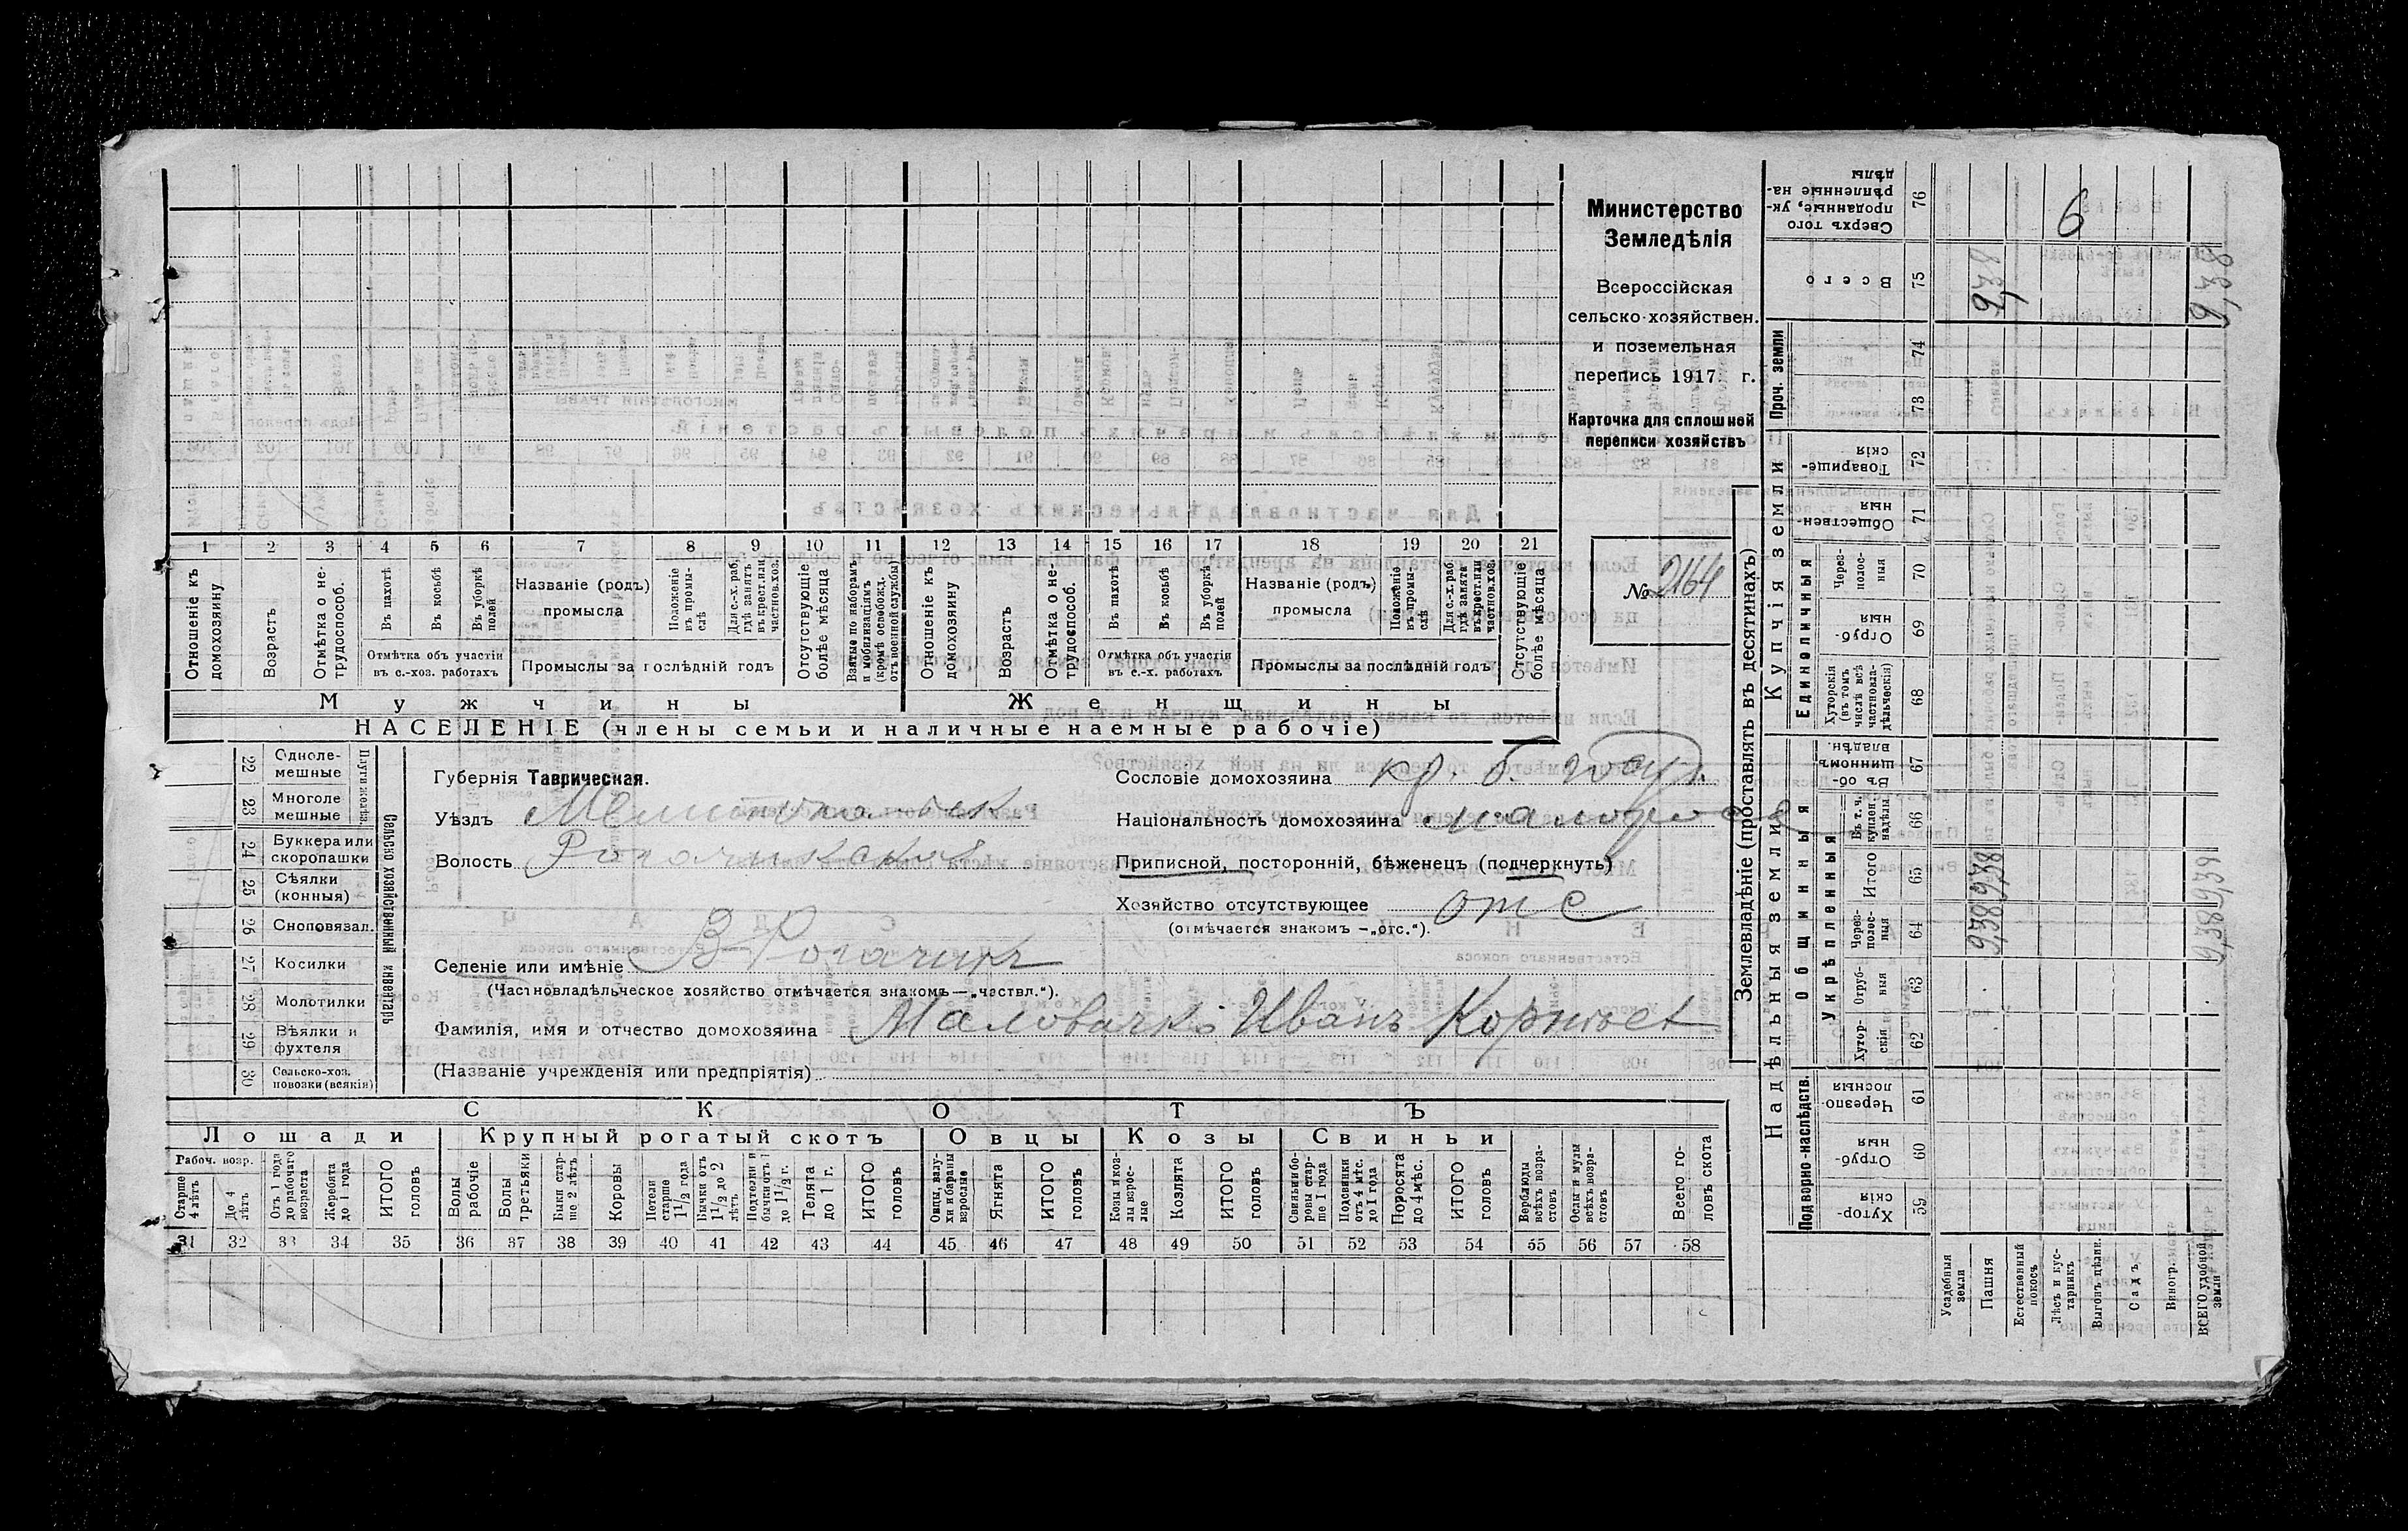 Министерство
Земледѣлія
Всероссійская
сельско-хозяйствен.
и поземельная
перепись 1917 г.
Карточка для сплошней
переписи хозяйствъ
№ 2164
1 2 3 4 5 6 7 8 9 10 11 12 13 14 15 16 17 18 19 20 21
Отношеніе къ домохозяину
Возрастъ
Отмѣтка о не-трудоспособ.
Въ пахотѣ
Въ косьбѣ
Въ уборкѣ полей
Отмѣтка объ участіи въ с.-хоз. работахъ
Названіе (родъ) промысла
Положеніе въ промы-слѣ
Для с.-х. раб. гдѣ занятъ въ крест. или частнов. хоз.
Промыслы за послѣдній годъ
Отсутствующіе болѣе мѣсяца
Взятые по наборамъ и мобилизаціямъ (кромѣ освобожд. отъ военной службы)
Отношеніе къ домохозяину
Возрастъ
Отмѣтка о не-трудоспособ.
Въ пахотѣ
Въ косьбѣ
Въ уборкѣ полей
Отмѣтка объ участіи въ с.-х. работахъ
Названіе (родъ) промысла
Положеніе въ промы-слѣ
Для с.-х. раб. гдѣ занята въ крест. или частнов. хоз.
Промыслы за послѣдній годъ
Отсутствующіе болѣе мѣсяца
Мужчины Женщины
НАСЕЛЕНІЕ (члены семьи и наличные наемные рабочіе)
22 Одноле-мешные
23 Многоле мешные
Плуги желѣз.
24 Буккера или скоропашки
25 Сѣялки (конныя)
26 Сноповязал.
27 Косилки
28 Молотилки
29 Вѣялки и фухтеля
30 Сельско-хоз. повозки (всякія)
Сельско хозяйственный инвентарь
Губернія Таврическая.
Уѣздъ
Волость
Селеніе или имѣніе В-Рогачикъ
(Частновладѣльческое хозяйство отмѣчается знакомъ—„частвл.“).
Фамилія, имя и отчество домохозяина Иванъ
(Названіе учрежденія или предпріятія)
Сословіе домохозяина кр. б. госуд.
Національность домохозяина малоросс
Приписной, посторонній, бѣженецъ (подчеркнуть)
Хозяйство отсутствующее отс
(отмѣчается знакомъ —„отс.“).
СКОТЪ
Лошади Крупный рогатый скотъ Овцы Козы Свиньи
Рабоч. возр.
Старше 4 лѣтъ
До 4 лѣтъ
Отъ 1 года до рабочаго возраста
Жеребята до 1 года
ИТОГО головъ
Волы рабочіе
Волы третьяки
Быки стар-ше 2 лѣтъ
Коровы
Нетели старше 1½ года
Бычки отъ 1½ до 2 лѣтъ
Подтелки и бычки отъ 1 до 1½ г.
Телята до 1 г.
ИТОГО головъ
Овцы, валу-хи и бараны взрослые
Ягнята
ИТОГО головъ
Козы и коз-лы взрос-лые
Козлята
ИТОГО головъ
Свиньи и бо-ровы стар-ше 1 года
Подсвинки отъ 4 мѣс. до 1 года
Поросята до 4 мѣс.
ИТОГО головъ
Верблюды всѣхъ возра-стовъ
Ослы и мулы всѣхъ возра-стовъ
Всего го-ловъ скота
31 32 33 34 35 36 37 38 39 40 41 42 43 44 45 46 47 48 49 50 51 52 53 54 55 56 57 58
Землевладѣніе (проставлять въ десятинахъ)
Надѣльныя земли
Купчія земли
Проч. земли
Подворно-наслѣдств.
Общинныя
Укрѣпленныя
Единоличныя
59 Хутор-скія
60 Отруб-ныя
61 Черезпо-лосныя
62 Хутор-скія
63 Отруб-ныя
64 Через-полос-ныя 9,38 9,38
65 Итого 9,38 9,38
66 Въ т. ч. куплен. надѣлы
67 Въ об-щинномъ владѣн.
68 Хуторскія (въ томъ числѣ всѣ частновла-дѣльческія)
69 Отруб-ныя
70 Через-полос-ныя
71 Обществен-ныя
72 Товарище-скія
73
74
75 Всего 9,38 9,38
76 Сверхъ того проданные, ук-рѣпленные на-дѣлы 6
Усадебныя земли
Пашня
Естественный покосъ
Лѣсъ и кус-тарникъ
Выгонъ цѣлин.
Садъ
Виногр.
ВСЕГО удобной земли